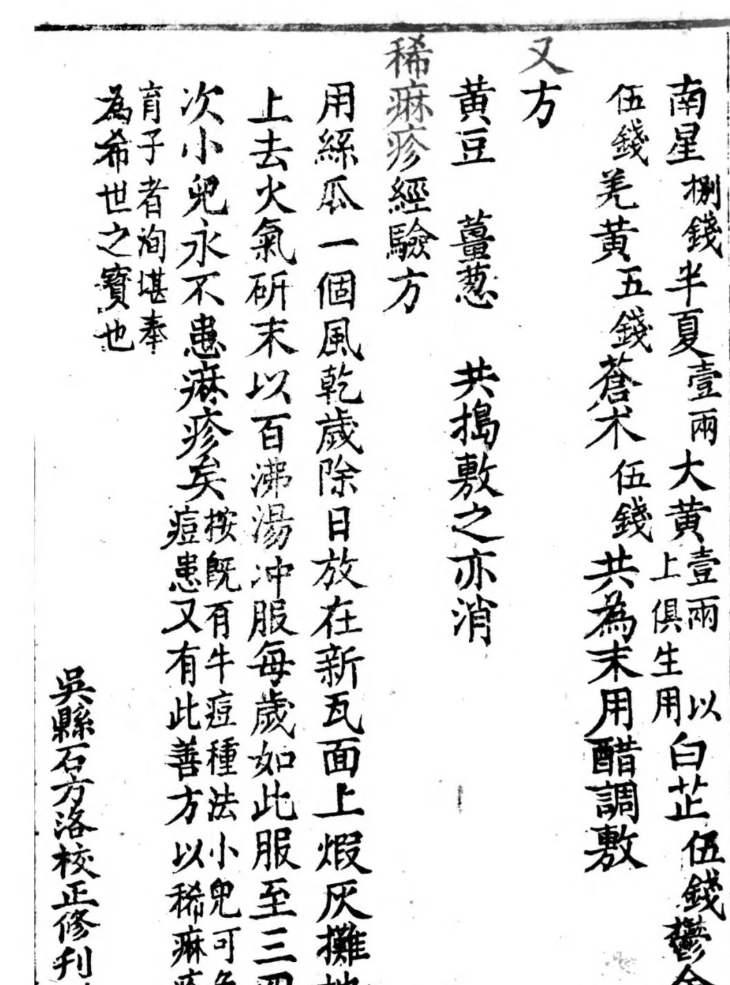 南星捌錢半夏壹兩大黃壹兩以上俱生用白芷伍錢鬱金
伍錢羌黃五錢蒼朮伍錢共為末用醋調敷
又方
黃豆 薑葱 共搗敷之亦消
稀痳疹經驗方
用絲瓜一個風乾歲除日放在新瓦面上煆灰攤地
上去火氣研末以百沸湯沖服每歲如此服至三四
次小兒永不患痳疹矣按既有牛痘種法小兒可免痘患又有此善方以稀痳疹
育子者洵堪奉
為希世之寶也
吳縣石方洛校正修刊